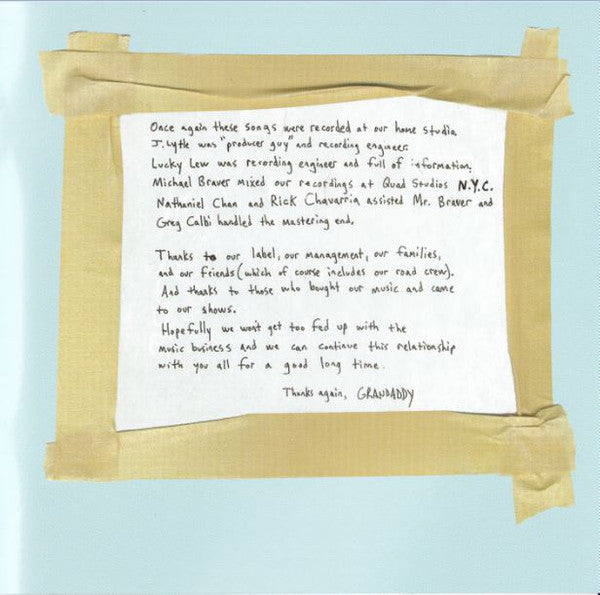 Once again these songs were recorded at our home studio.
J. Lytle was "producer guy" and recording engineer.
Lucky Lew was recording engineer and full of information.
Michael Braver mixed our recordings at Quad Studios N.Y.C.
Nathaniel Chan and Rick Chavarria assisted Mr. Braver and
Greg Calbi handled the mastering end.
Thanks to our label, our management, our families,
and our friends (which of course includes our road crew).
And thanks to those who bought our music and came
to our shows.
Hopefully we won't get too fed up with the
music business and we can continue this relationship
with you all for a good long time.
Thanks again, GRANDADDY